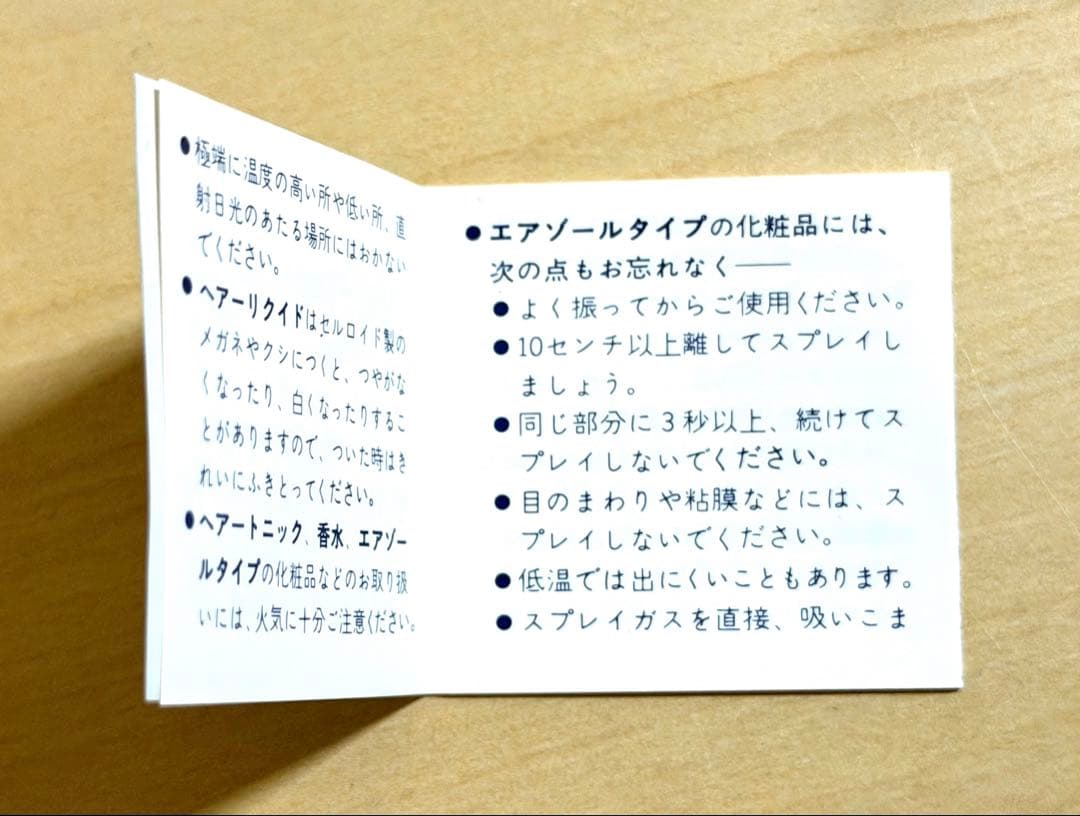 ●極端に温度の高い所や低い所、直
射日光のあたる場所にはおかない
でください。
●ヘアーリクイドはセルロイド製の
メガネやクシにつくと、つやがな
くなったり、白くなったりするこ
とがありますので、ついた時はき
れいにふきとってください。
●ヘアートニック、香水、エアゾー
ルタイプの化粧品などのお取り扱
いには、火気に十分ご注意ください。
●エアゾールタイプの化粧品には、
次の点もお忘れなく——
●よく振ってからご使用ください。
●10センチ以上離してスプレイし
ましょう。
●同じ部分に3秒以上、続けてス
プレイしないでください。
●目のまわりや粘膜などには、ス
プレイしないでください。
●低温では出にくいこともあります。
●スプレイガスを直接、吸いこま